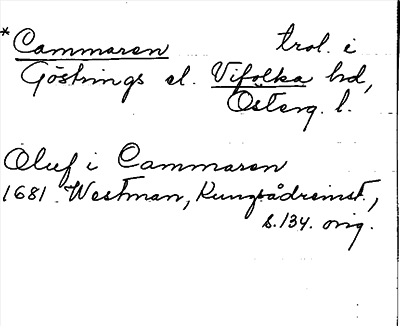 *Cammaren trol. i
Göstrings el. Vifolka hd,
Österg. l.
Oluf i Cammaren
1681 Westman, Kungsådreinst.,
s. 134. orig.